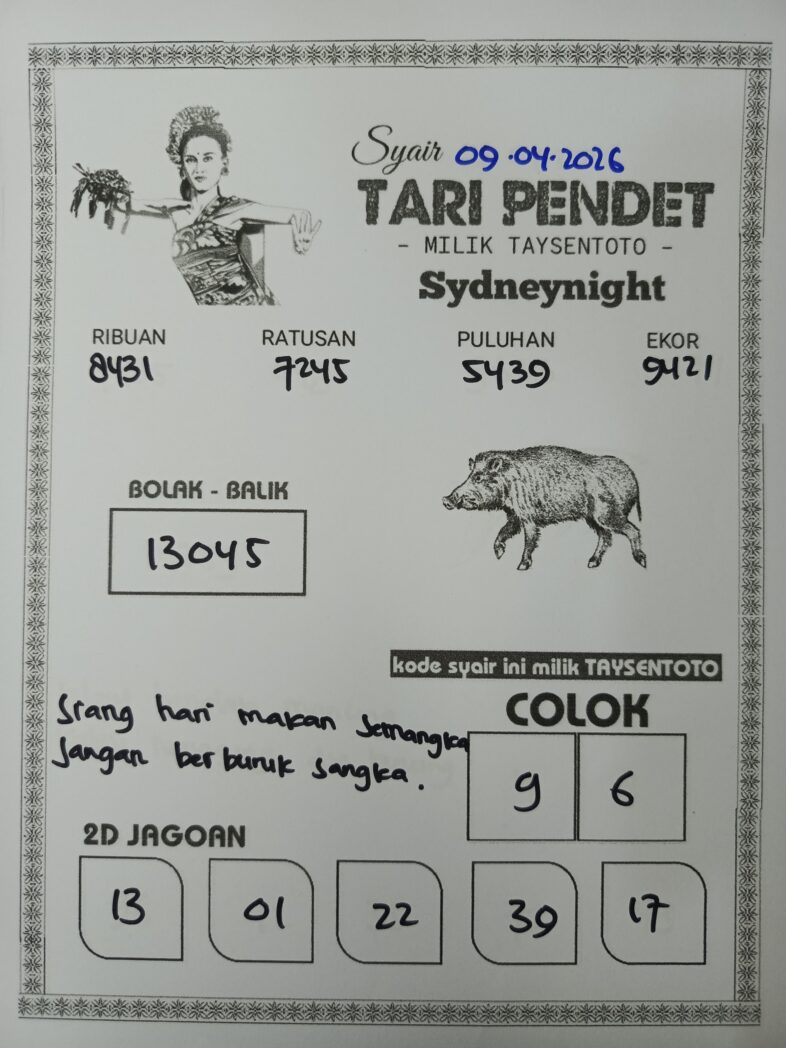 Syair 09.04.2026
TARI PENDET
- MILIK TAYSENTOTO -
Sydneynight
RIBUAN RATUSAN PULUHAN EKOR
8431 7245 5439 9421
BOLAK - BALIK
13045
kode syair ini milik TAYSENTOTO
COLOK
9 6
Siang hari makan semangka
Jangan berburuk sangka.
2D JAGOAN
13 01 22 39 17